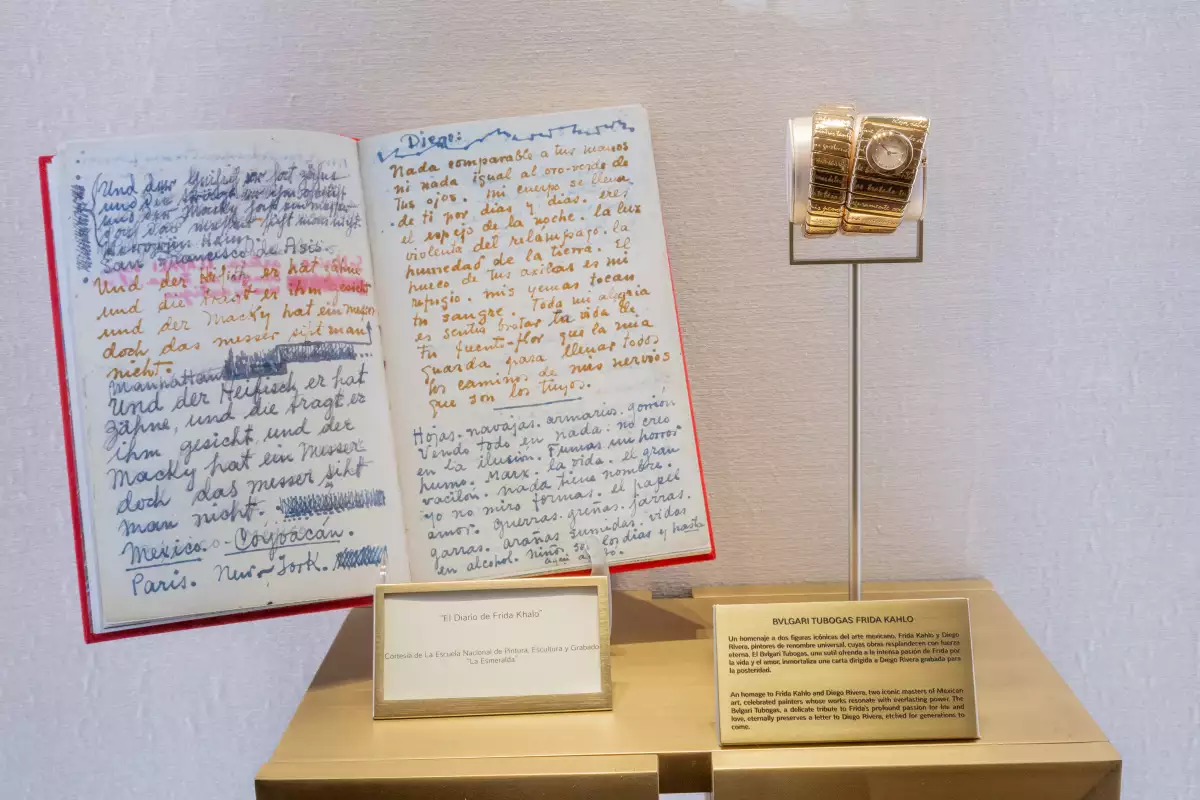 Und der Haifisch er hat zähne
und der Macky hat ein messer
San Francisco de Asis.
Und der haifich er hat zähne
und die tragt er ihm gesicht
und der Macky hat ein messer
doch das messer siht man
nicht.
Manhattan
Und der Heifisch er hat
zähne, und die tragt er
ihm gesicht, und der
Macky hat ein Messer
doch das messer siht
man nicht.
Mexico. Coyoacán.
Paris. New-York.
Diego:
Nada comparable a tus manos
ni nada igual al oro-verde de
tus ojos. mi cuerpo se llena
de ti por dias y dias. eres
el espejo de la noche. la luz
violenta del relámpago. la
humedad de la tierra. El
hueco de tus axilas es mi
refugio. mis yemas tocan
tu sangre. Toda mi alegria
es sentir brotar tu vida de
tu fuente-flor que la mia
guarda para llenar todos
los caminos de mis nervios
que son los tuyos.
Hojas. navajas. armario. gorrion
Vendo todo en nada. no creo
en la ilusión. Fumas un horror
humo. Marx. la vida. el gran
vacilón. nada tiene nombre.
yo no miro formas. el papel
amor. guerras. greñas. jarras.
garras. arañas sumidas. vidas
en alcohol. niños son los dias y hasta
aqui
"El Diario de Frida Khalo"
Cortesía de La Escuela Nacional de Pintura, Escultura y Grabado
"La Esmeralda"
BVLGARI TUBOGAS FRIDA KAHLO
Un homenaje a dos figuras icónicas del arte mexicano, Frida Kahlo y Diego
Rivera, pintores de renombre universal, cuyas obras resplandecen con fuerza
eterna. El Bvlgari Tubogas, une sutil ofrenda a la intensa pasión de Frida por
la vida y el amor, inmortaliza una carta dirigida a Diego Rivera grabada para
la posteridad.
An homage to Frida Kahlo and Diego Rivera, two iconic masters of Mexican
art, celebrated painters whose works resonate with everlasting power. The
Bvlgari Tubogas, a delicate tribute to Frida's profound passion for life and
love, eternally preserves a letter to Diego Rivera, etched for generations to
come.